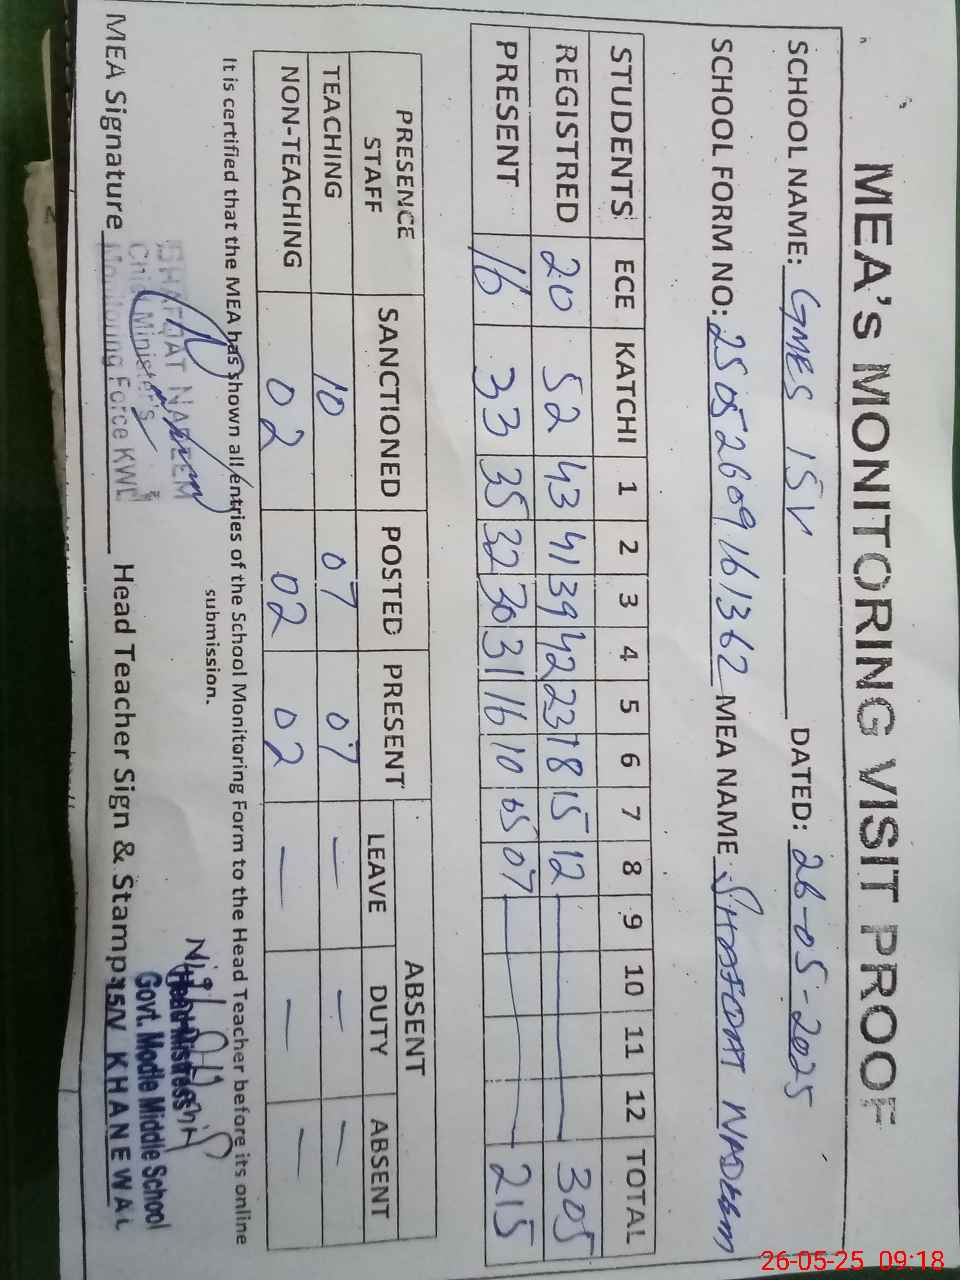 MEA's MONITORING VISIT PROOF
SCHOOL NAME: GMES 15V DATED: 26-05-2025
SCHOOL FORM NO: 25052609161362 MEA NAME SHAFQAT NADEEM
STUDENTS ECE KATCHI 1 2 3 4 5 6 7 8 9 10 11 12 TOTAL
REGISTRED 20 52 43 41 39 42 23 18 15 12 305
PRESENT 16 33 35 32 30 31 16 10 05 07 215
PRESENCE STAFF SANCTIONED POSTED PRESENT ABSENT
LEAVE DUTY ABSENT
TEACHING 10 07 07 — — —
NON-TEACHING 02 02 02 — — —
It is certified that the MEA has shown all entries of the School Monitoring Form to the Head Teacher before its online
submission.
SHAFQAT NADEEM
Chief Minister's
Monitoring Force KWL
MEA Signature Head Teacher Sign & Stamp
Head Mistress
Govt. Modle Middle School
15/V KHANEWAL
26-05-25 09:18